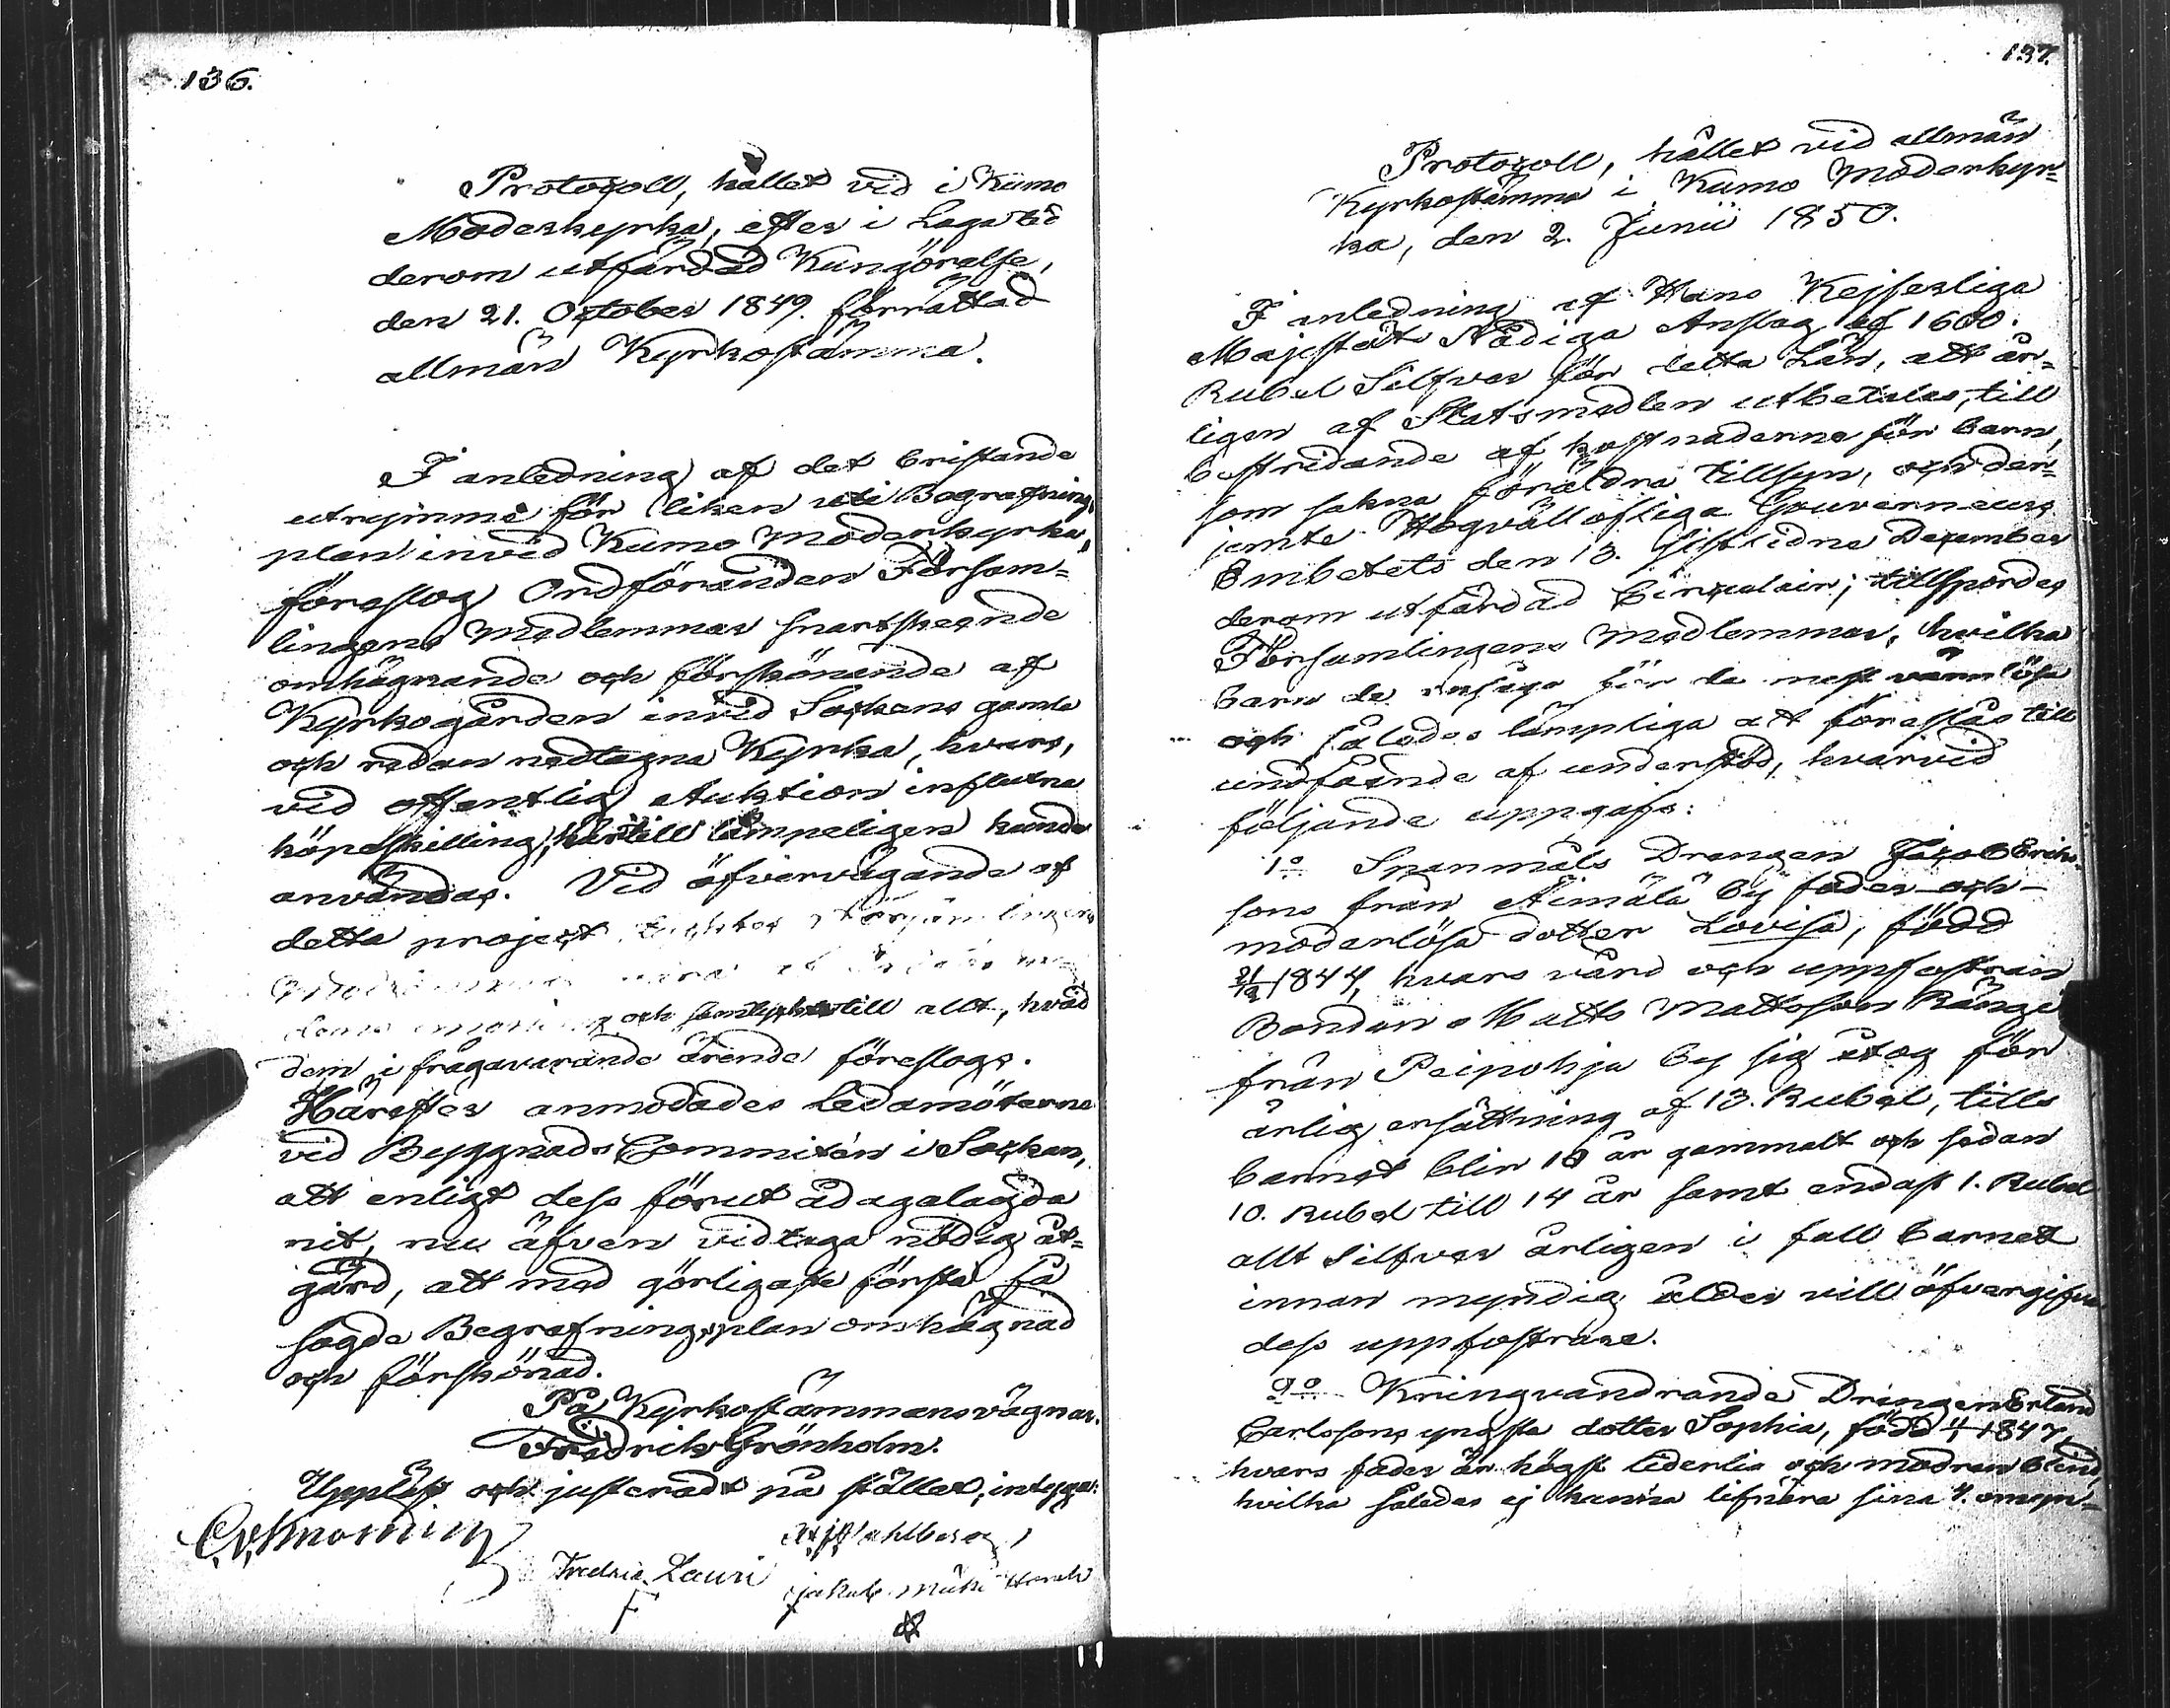 136.
Protocoll, hållet vid i Kumo
Moderkyrka, efter i Laga tid
derom utfärdad Kungörelse,
den 21. October 1849. förrättad
allmän Kyrkostämma.
I anledning af det bristande
utrymme för liken uti Begrafnings
plan invid Kumo Moderkyrka,
föreslog Ordföranden Försam=
lingens Medlemmar snartskeende
omhägnande och förskönande af
Kyrkogården invid Sockens gamla
och redan nedtagna Kyrka, hvars,
vid offentlig Auktion influtna
köpeskilling, härtill lämpeligen kunde
användas. Vid öfvervägande af
detta project Församlingens
och samtyckte till allt, hvad
dem i frågavarande ärende föreslogs.
Härefter anmodades Ledamöterne
vid Byggnads Committén i Socken,
att enligt dess förut ådagalagda
nit, nu äfven vidtaga nödig åt=
gärd, att med görligaste första få
sagde Begrafningsplan omhägnad
och förskönad.
På Kyrkostämmans vägnar.
Fredrik Grönholm.
Uppläst och justeradt på stället, intyga:
Fredric Lauri
Jakob
137.
Protocoll, hållet vid allmän
Kyrkostämma i Kumo Moderkyr=
ka, den 2. Junii 1850.
I anledning af Hans Kejserliga
Majestäts Nådiga Anslag af 1600.
Rubel Silfver för detta Län, att år=
ligen af Statsmedlen utbetalas, till
bestridande af kostnaderne för barn,
som sakna föräldra tillsyn, och der=
jemte Högvällofliga Gouverneurs
Embetets den 13. sistledne December
derom utfärdad Circulair; tillspordes
Församlingens Medlemmar, hvilka
barn de ansågo för de mest värnlösa
och således lämpliga att föreslås till
undfående af understöd, hvarvid
följande uppgafs:
1:o Spanmåls Drängen Jacob Eriks=
sons från Aimälä By fader- och-
moderlösa dotter Lovisa, född
21/2 1844, hvars vård och uppfostran
Bonden Matts Mattsson Ränge
från Peipohja By sig åtog för
årlig ersättning af 13. Rubel, tills
barnet blir 10 år gammalt och sedan
10. Rubel till 14 år samt endast 1. Rubel
allt Silfver årligen i fall barnet
innan myndig ålder vill öfvergifva
dess uppfostrare.
2:o Kringvandrande Drängen Erland
Carlssons yngsta dotter Sophia, född 1847,
hvars fader är högst liderlig och modren blind,
hvilka således ej kunna lifnära sina 4. omyn=